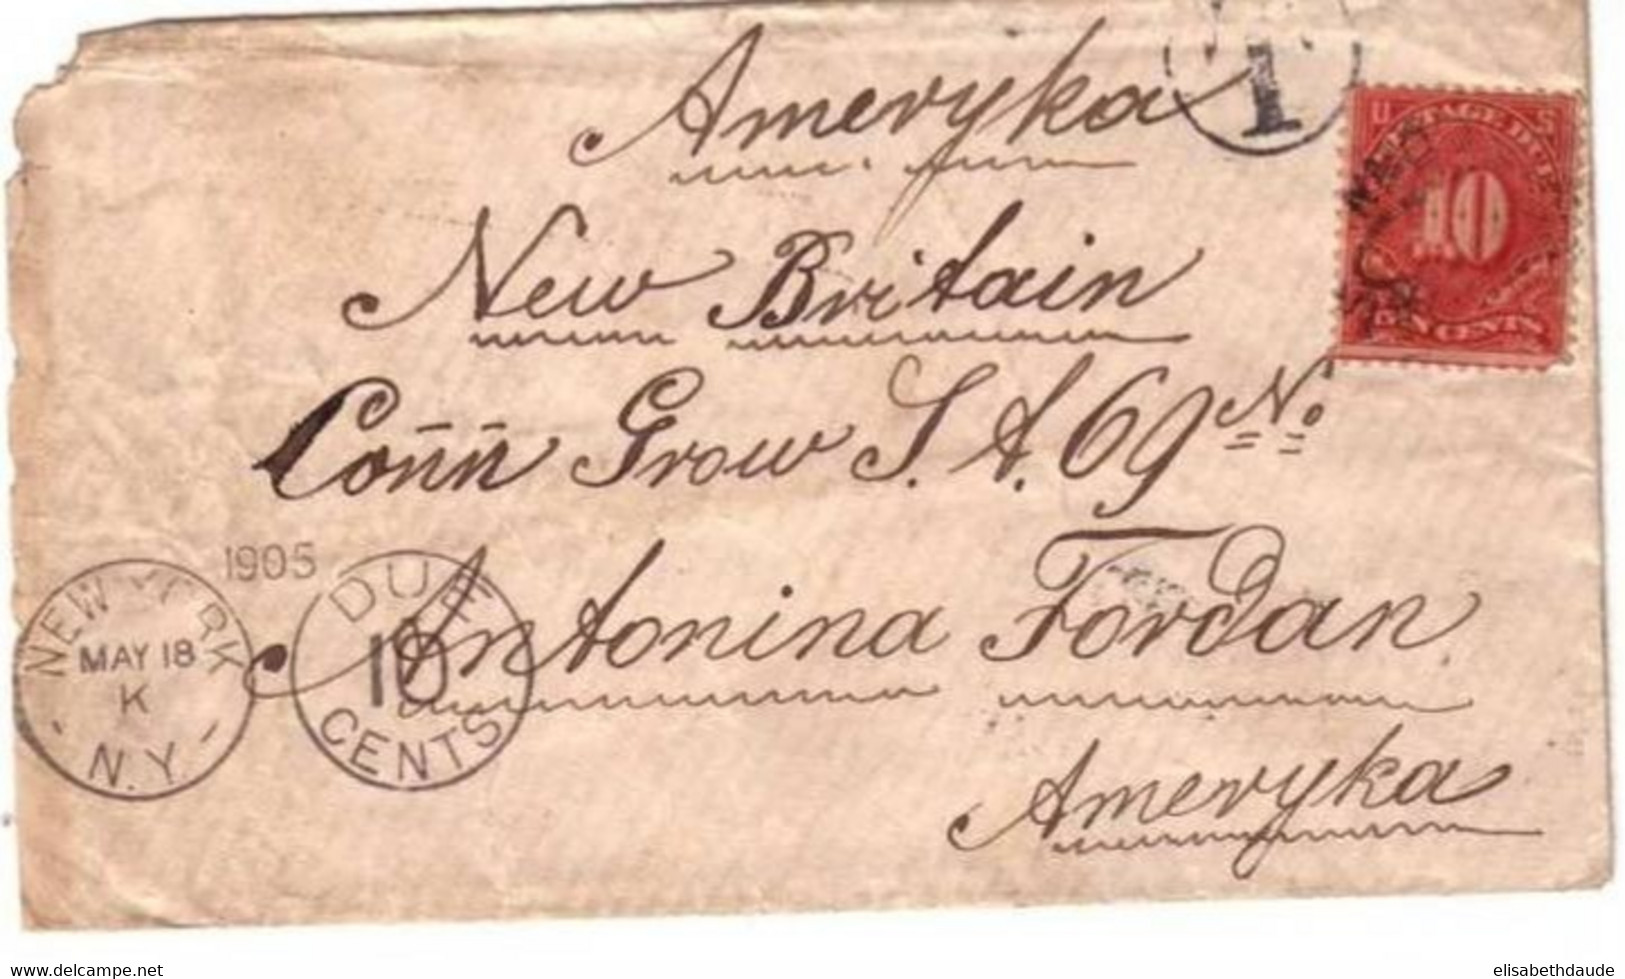 T
Ameryka
U S
POSTAGE DUE
10
TEN CENTS
New Britain
Conn Grow S. t. 69 No
1905
NEW YORK
MAY 18
K
N.Y.
DUE
10
CENTS
Antonina Jordan
Ameryka
delcampe.net
elisabethdaude